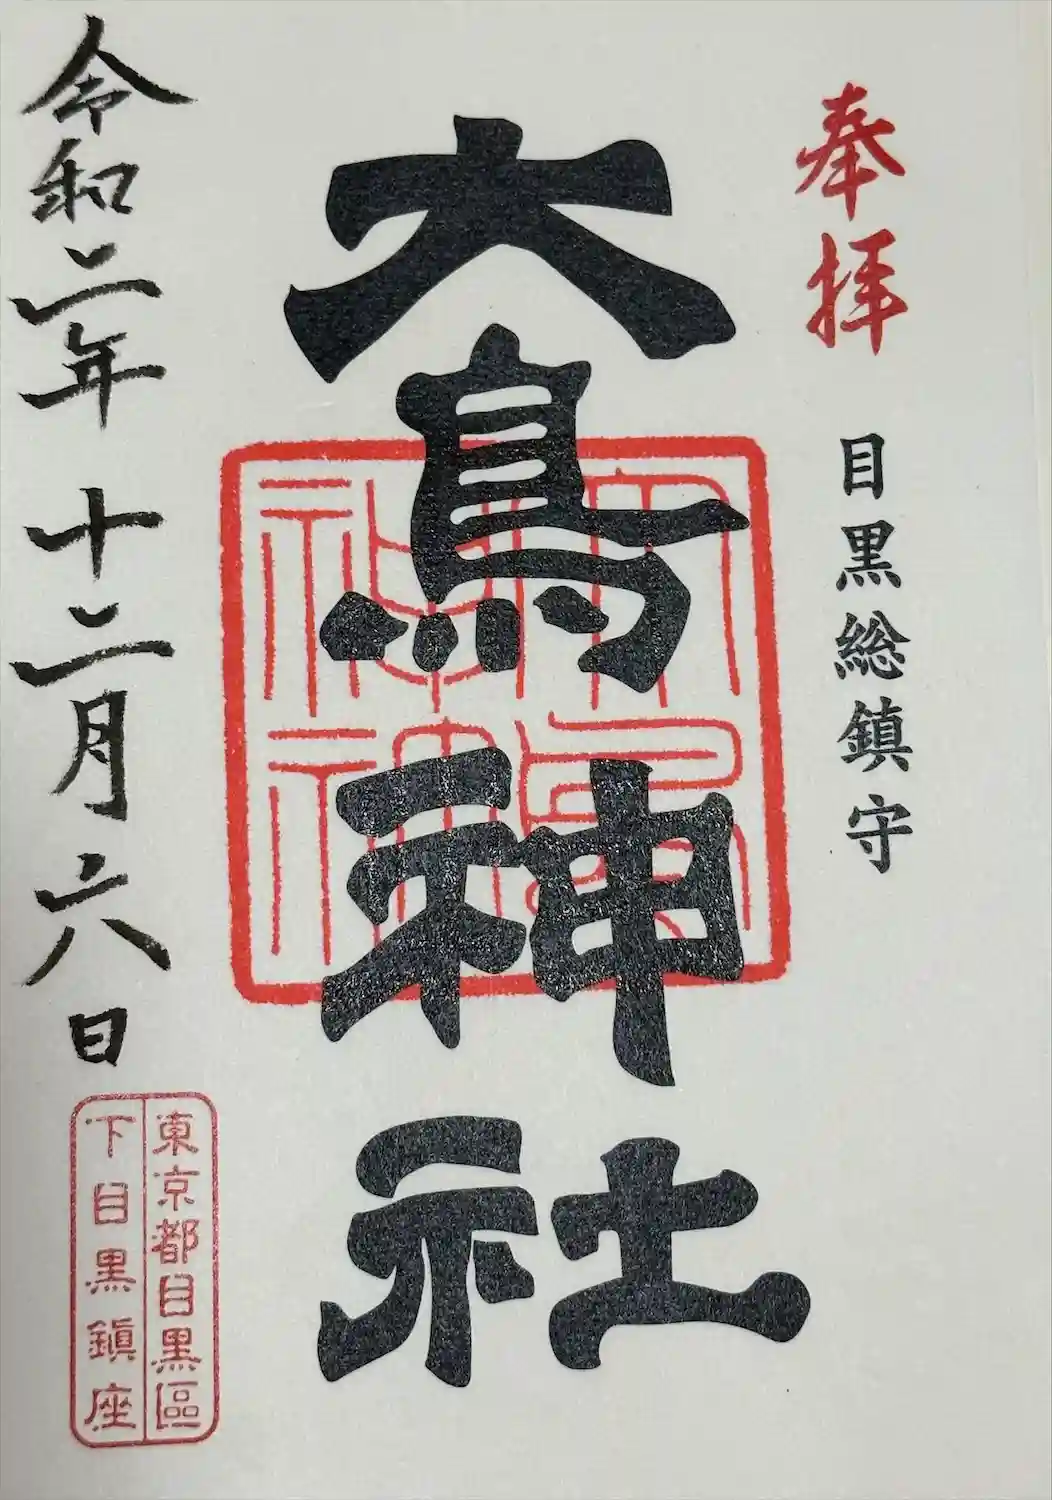 奉拝
目黒総鎮守
大鳥神社
大鳥神社
令和二年十二月六日
東京都目黒區
下目黒鎭座